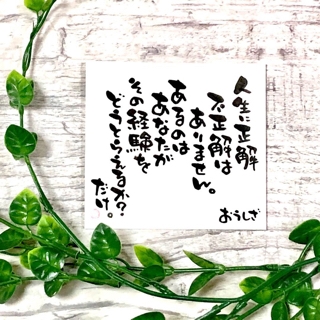 人生に正解
不正解は
ありません。
あるのは
あなたが
その経験を
どうとらえるか?
だけ。
おうしざ